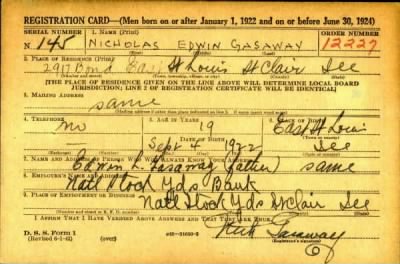 REGISTRATION CARD—(Men born on or after January 1, 1922 and on or before June 30, 1924)
SERIAL NUMBER 1. NAME (Print) ORDER NUMBER
N 145 NICHOLAS EDWIN GASAWAY 12227
2. PLACE OF RESIDENCE (Print)
2917 Bond East St Louis St Clair Ill
[THE PLACE OF RESIDENCE GIVEN ON THE LINE ABOVE WILL DETERMINE LOCAL BOARD
JURISDICTION; LINE 2 OF REGISTRATION CERTIFICATE WILL BE IDENTICAL]
3. MAILING ADDRESS
same
4. TELEPHONE 5. AGE IN YEARS 6. PLACE OF BIRTH
no 19 East St Louis
DATE OF BIRTH
Sept 4 1922 Ill
7. NAME AND ADDRESS OF PERSON WHO WILL ALWAYS KNOW YOUR ADDRESS
Edwin Gasaway (father) same
8. EMPLOYER'S NAME AND ADDRESS
Natl Stock Yds Bank
9. PLACE OF EMPLOYMENT OR BUSINESS
Natl Stock Yds St Clair Ill
I AFFIRM THAT I HAVE VERIFIED ABOVE ANSWERS AND THAT THEY ARE TRUE.
D. S. S. Form 1
(Revised 6-1-42) (over) Nick Gasaway
(Registrant's signature)